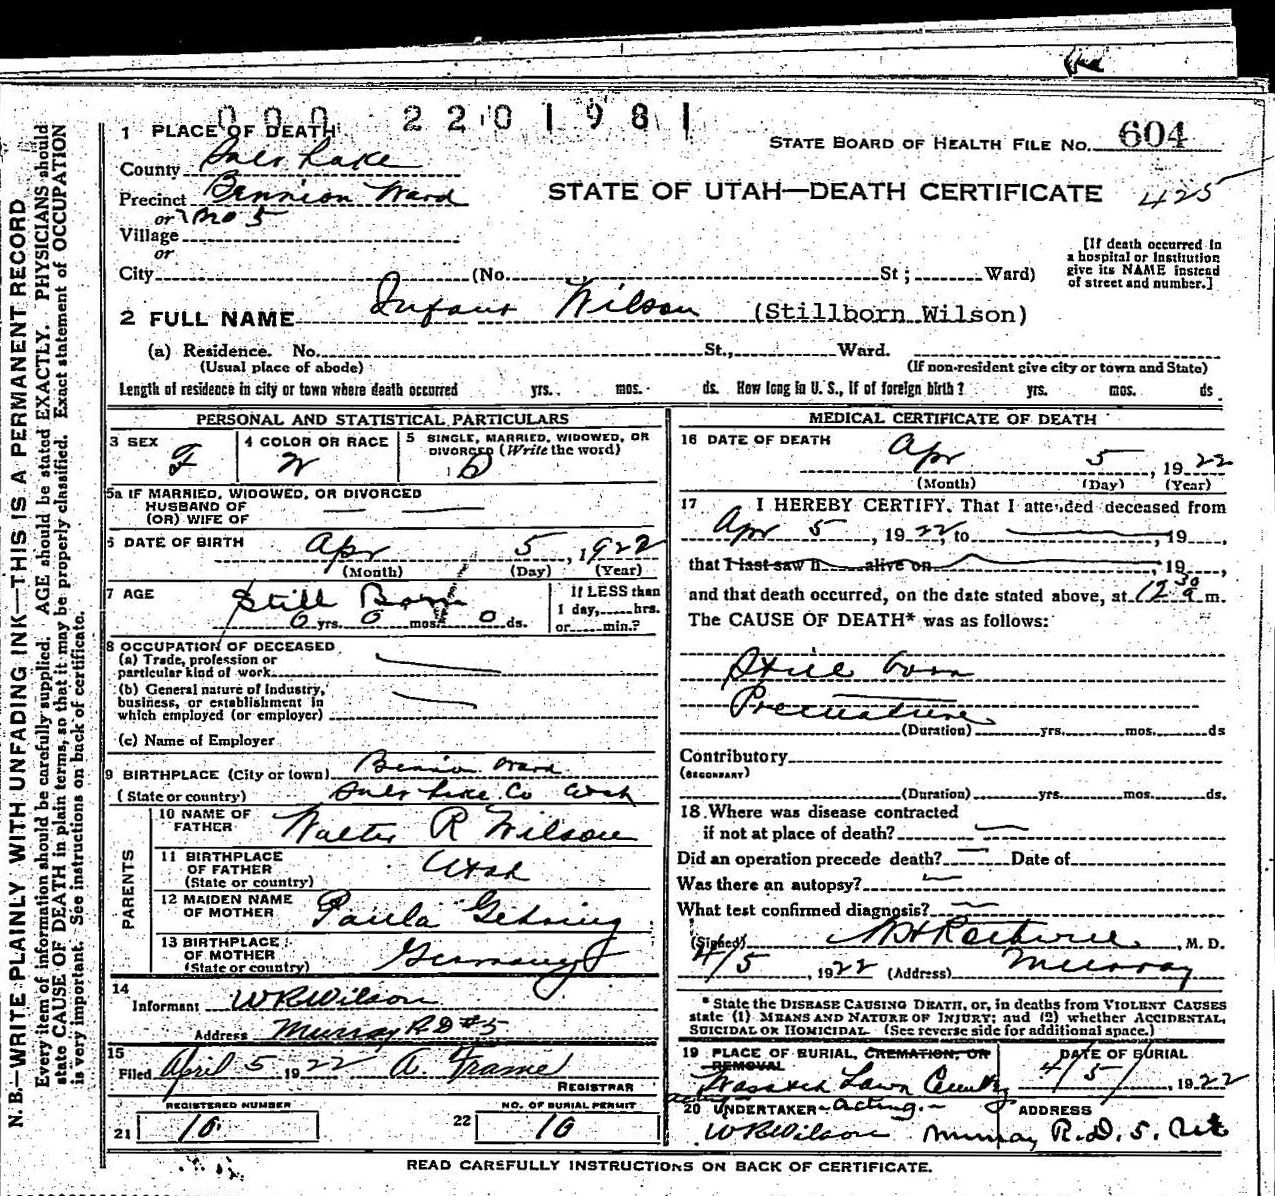 0 0 0 2 2 0 1 9 8 1
1 PLACE OF DEATH
STATE BOARD OF HEALTH FILE NO. 604
County Salt Lake
Precinct Bennion Ward
STATE OF UTAH—DEATH CERTIFICATE 425
or No 5
Village
or
City (No. St; Ward)
[If death occurred in
a hospital or institution
give its NAME instead
of street and number.]
2 FULL NAME Infant Wilson (Stillborn Wilson)
(a) Residence. No. St., Ward.
(Usual place of abode) (If non-resident give city or town and State)
Length of residence in city or town where death occurred yrs. mos. ds. How long in U. S., if of foreign birth? yrs. mos. ds.
PERSONAL AND STATISTICAL PARTICULARS
3 SEX F
4 COLOR OR RACE W
5 SINGLE, MARRIED, WIDOWED, OR
DIVORCED (Write the word)
5a IF MARRIED, WIDOWED, OR DIVORCED
HUSBAND OF
(OR) WIFE OF
6 DATE OF BIRTH Apr 5, 1922
(Month) (Day) (Year)
7 AGE Still Born
0 yrs. 0 mos. 0 ds.
If LESS than
1 day, hrs.
or min.?
8 OCCUPATION OF DECEASED
(a) Trade, profession or
particular kind of work
(b) General nature of industry,
business, or establishment in
which employed (or employer)
(c) Name of Employer
9 BIRTHPLACE (City or town) Bennion Ward
(State or country) Salt Lake Co Utah
PARENTS
10 NAME OF
FATHER Walter R Wilson
11 BIRTHPLACE
OF FATHER
(State or country) Utah
12 MAIDEN NAME
OF MOTHER Paula Gehring
13 BIRTHPLACE
OF MOTHER
(State or country) Germany
14
Informant W R Wilson
Address Murray R D #5
15
Filed April 5 1922 A. Frame
REGISTRAR
REGISTERED NUMBER
21 10
NO. OF BURIAL PERMIT
22 10
MEDICAL CERTIFICATE OF DEATH
16 DATE OF DEATH
Apr 5, 1922
(Month) (Day) (Year)
17 I HEREBY CERTIFY, That I attended deceased from
Apr 5, 1922, to , 19 ,
that I last saw h alive on , 19 ,
and that death occurred, on the date stated above, at 12 30 a m.
The CAUSE OF DEATH* was as follows:
Still born
Premature
(Duration) yrs. mos. ds
Contributory
(SECONDARY)
(Duration) yrs. mos. ds.
18 Where was disease contracted
if not at place of death?
Did an operation precede death? Date of
Was there an autopsy?
What test confirmed diagnosis?
(Signed) , M. D.
4/5, 1922 (Address) Murray
* State the DISEASE CAUSING DEATH, or, in deaths from VIOLENT CAUSES
state (1) MEANS AND NATURE OF INJURY; and (2) whether ACCIDENTAL,
SUICIDAL OR HOMICIDAL. (See reverse side for additional space.)
19 PLACE OF BURIAL, CREMATION, OR
REMOVAL
Wasatch Lawn
DATE OF BURIAL
4/5/, 1922
20 UNDERTAKER - acting - ADDRESS
W R Wilson Murray R. D. 5. Ut
READ CAREFULLY INSTRUCTIONS ON BACK OF CERTIFICATE.
N. B.—WRITE PLAINLY WITH UNFADING INK—THIS IS A PERMANENT RECORD
Every item of information should be carefully supplied. AGE should be stated EXACTLY. PHYSICIANS should
state CAUSE OF DEATH in plain terms, so that it may be properly classified. Exact statement of OCCUPATION
is very important. See instructions on back of certificate.